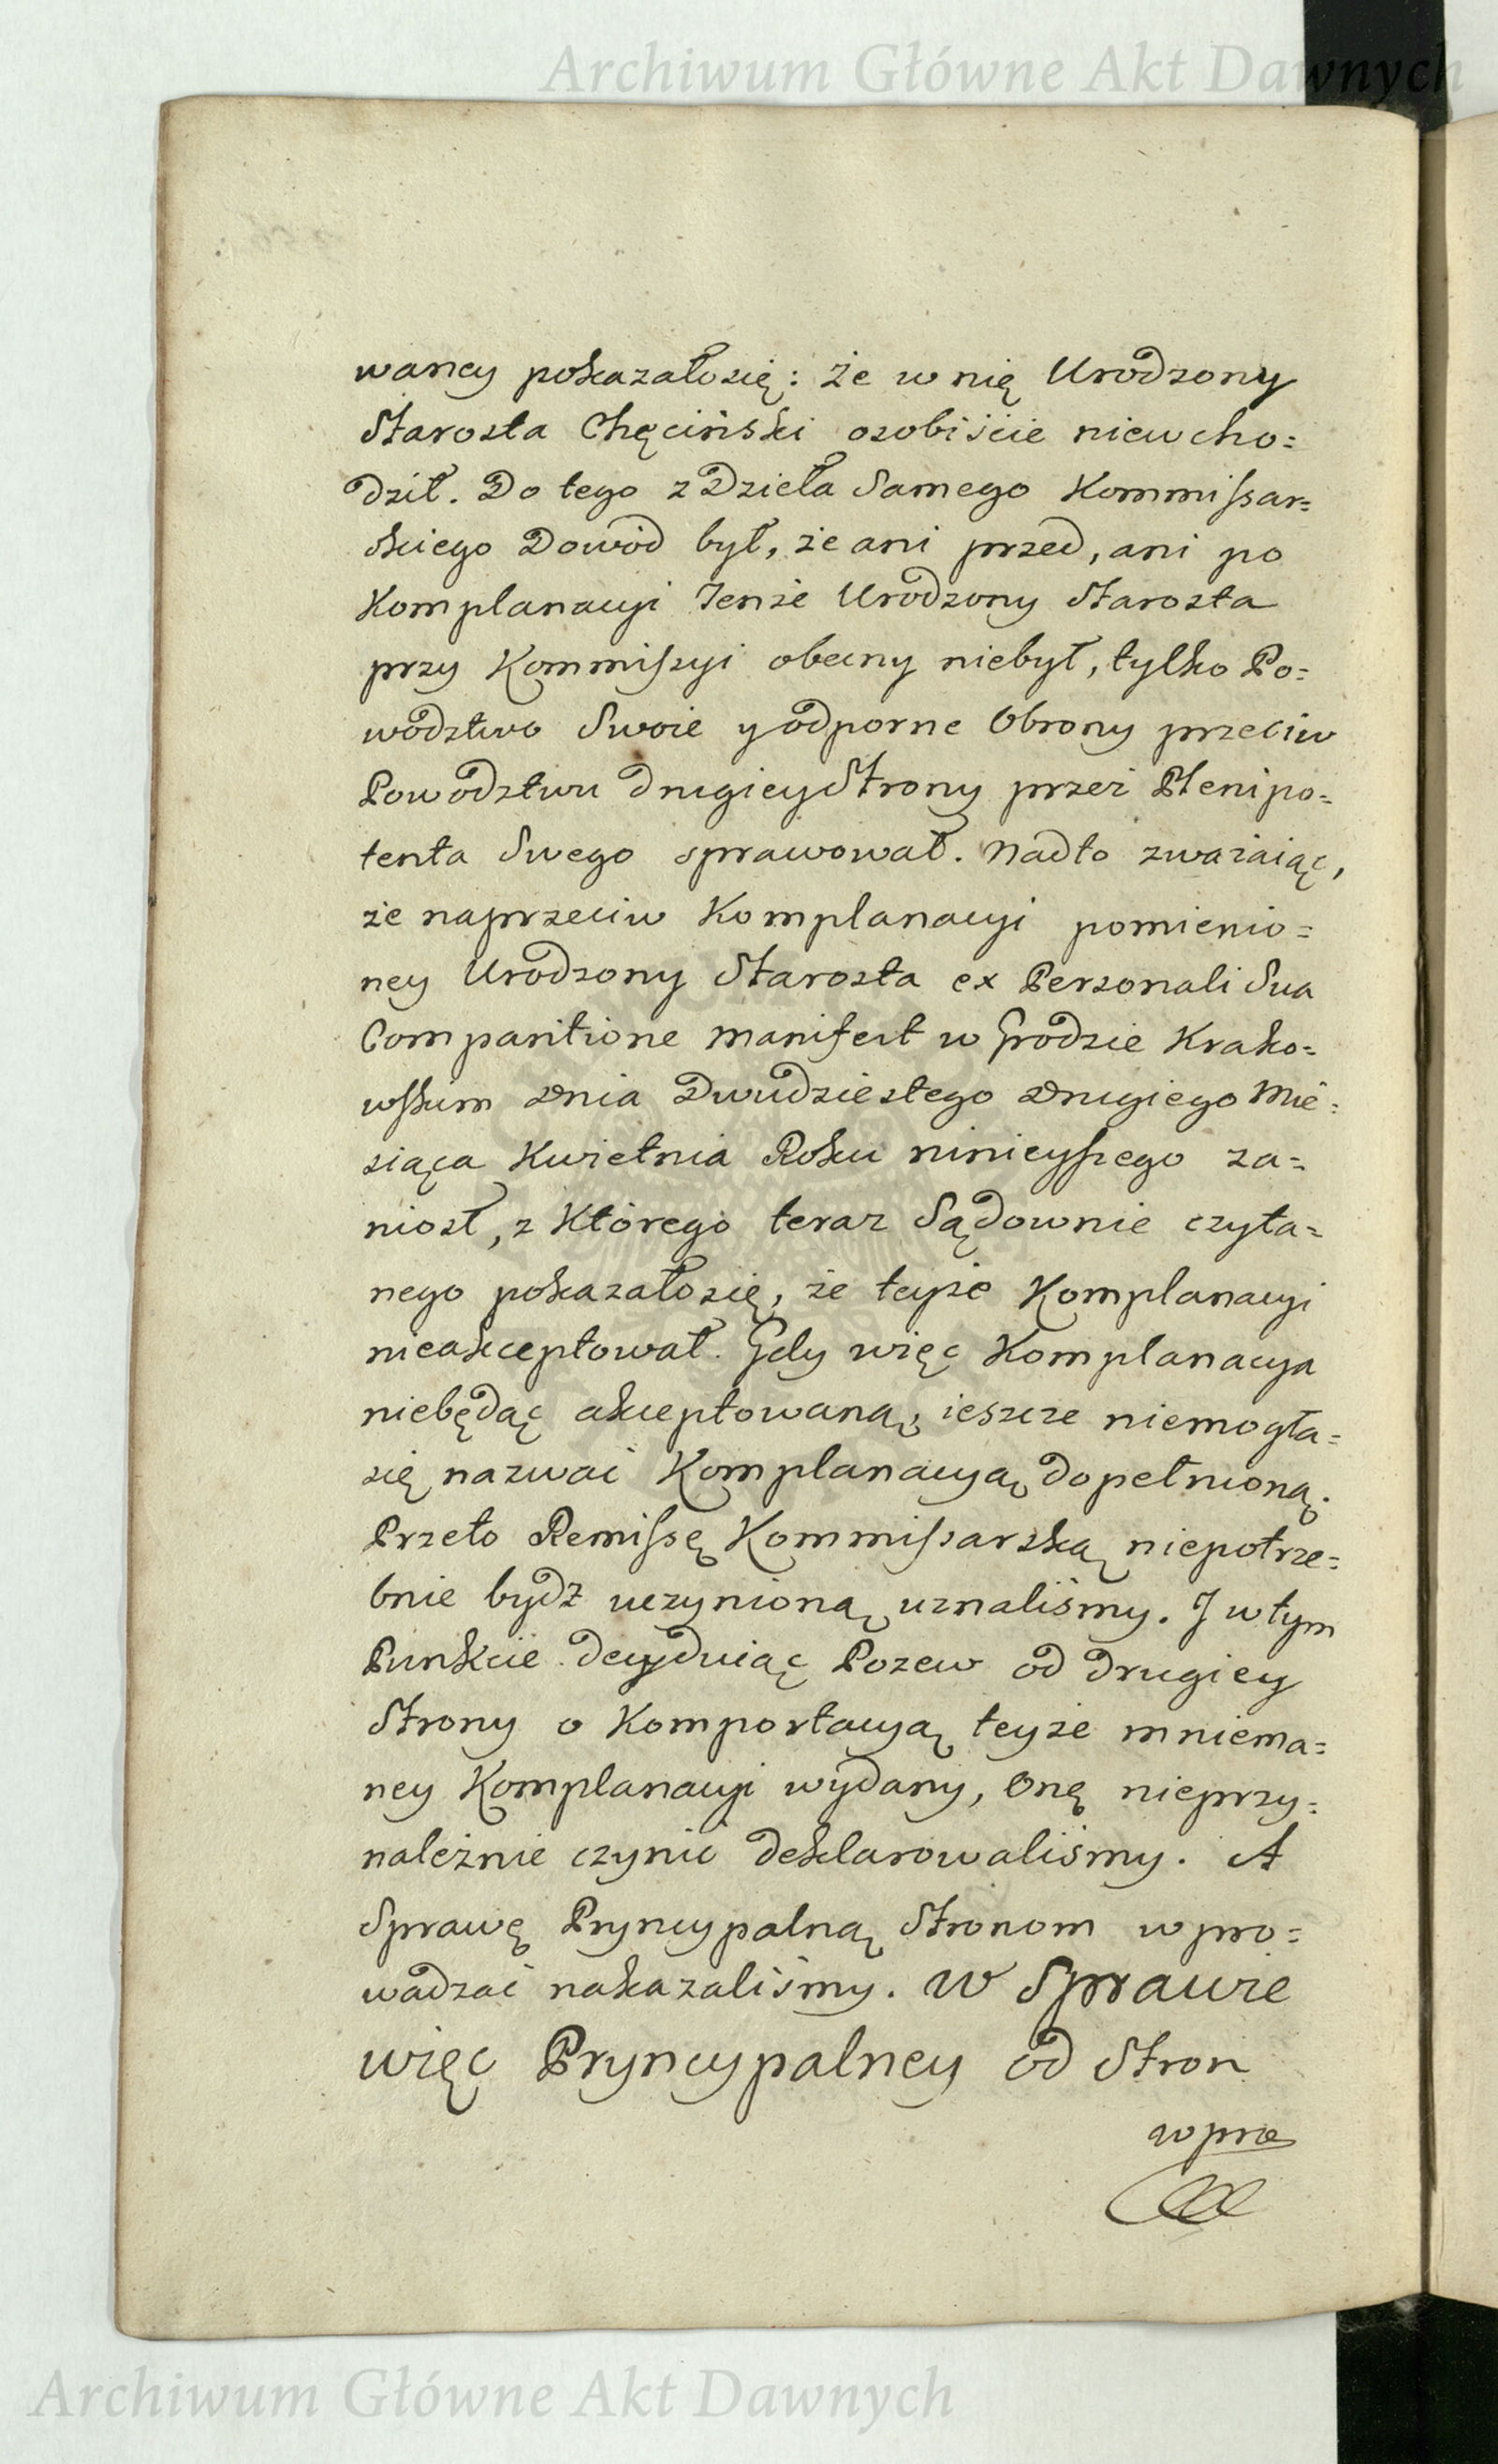 Archiwum Główne Akt Dawnych
waney pokazałosię: że w nię Urodzony
Starosta Chęciński osobiście niewcho=
dził. Do tego z Dzieła Samego Kommissar=
skiego Dowód był, że ani przed, ani po
Komplanacyi Tenże Urodzony Starosta
przy Kommissyi obecny niebył, tylko Po=
wodztwo Swoie y odporne Obrony przeciw
Powodztwu drugiey Strony przez Plenipo=
tenta Swego sprawował. Nadto zważaiąc,
że naprzeciw Komplanacyi pomienio=
ney Urodzony Starosta ex Personali Sua
Comparitione Manifest w Grodzie Krako=
wskim Dnia Dwudziestego Drugiego Mie=
siąca Kwietnia Roku ninieyszego za=
niosł, z Którego teraz Sądownie czyta=
nego pokazałosię, że teyże Komplanacyi
nieakceptował. Gdy więc Komplanacya
niebędąc akceptowaną, ieszcze niemogła=
się nazwać Komplanacyą dopełnioną.
Przeto Remissę Kommissarską niepotrze=
bnie bydź uczynioną uznaliśmy. J w tym
Punkcie decyduiąc Pozew od drugiey
Strony o Komportacyą teyże mniema=
ney Komplanacyi wydany, Onę nieprzy=
należnie czynić deklarowaliśmy. A
Sprawę Pryncypalną Stronom wpro=
wadzać nakazaliśmy. W Sprawie
więc Pryncypalney od Stron
wpro
Archiwum Główne Akt Dawnych